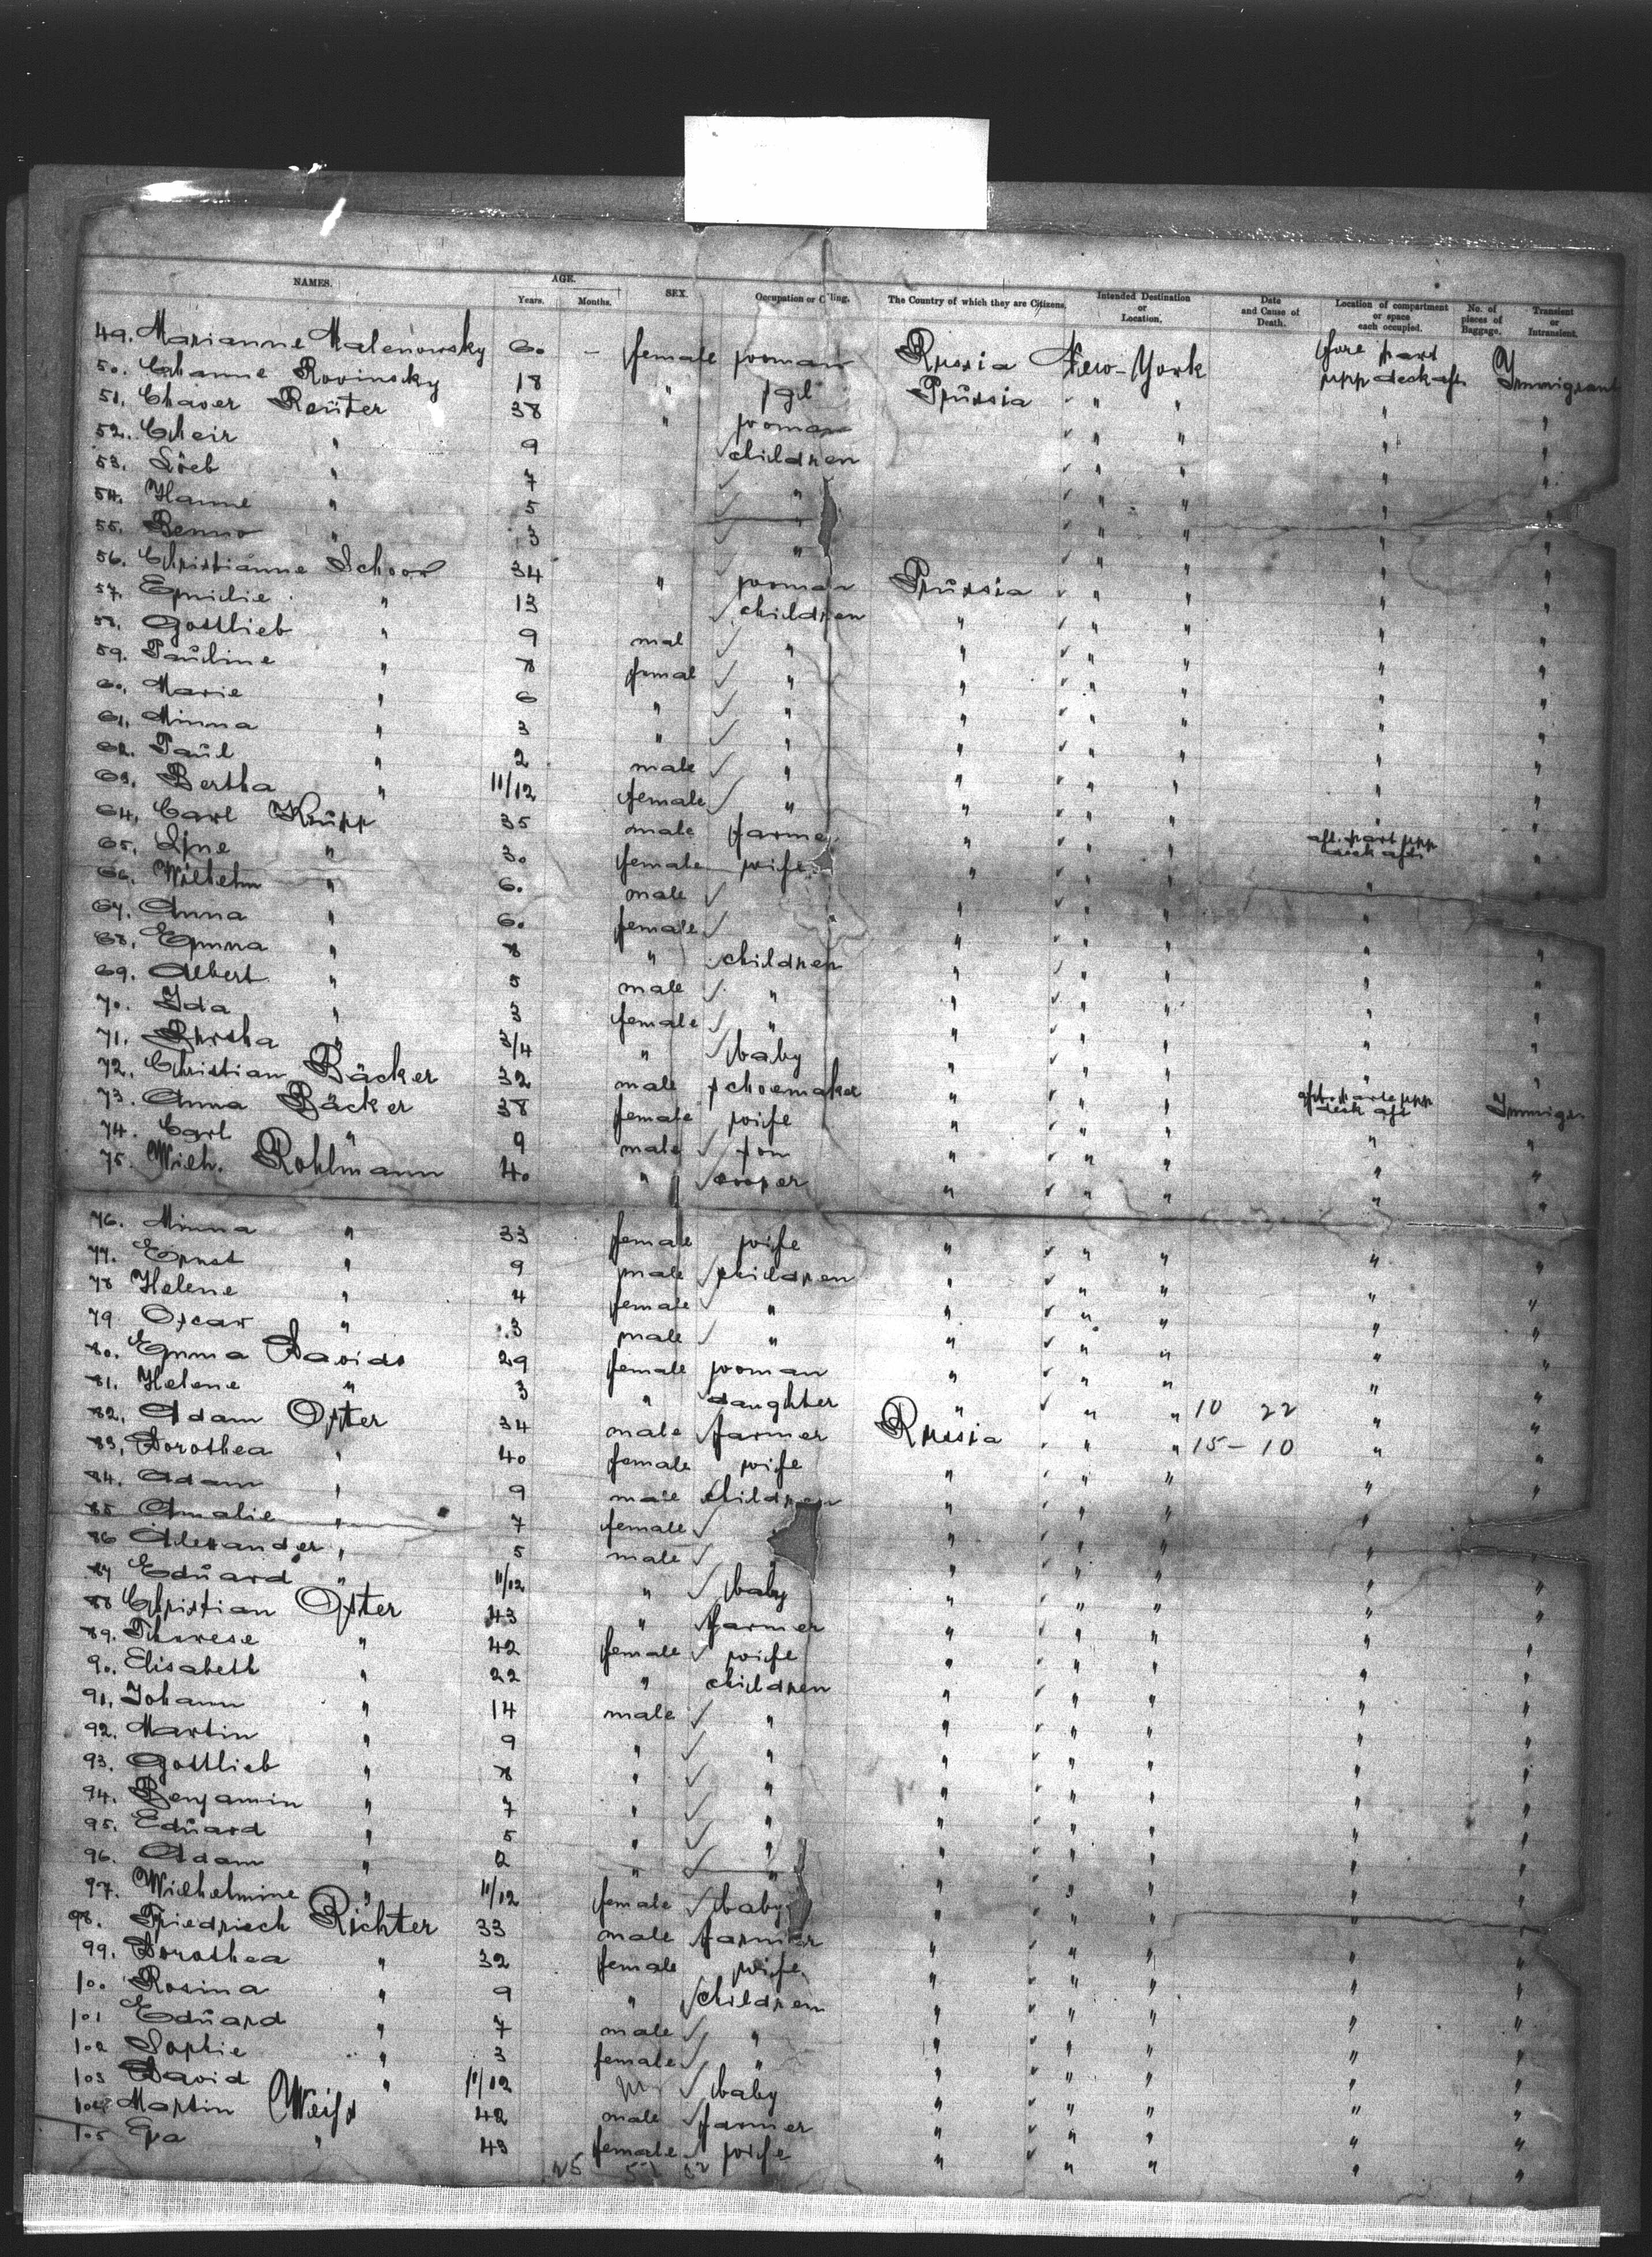 NAMES. AGE. SEX. Occupation or C ling. The Country of which they are Citizens. Intended Destination or Location. Date and Cause of Death. Location of compartment or space each occupied. No. of pieces of Baggage. Transient or Intransient.
Years. Months.
49. Marianne Malenowsky 60 - female woman Russia New-York fore part upp deck aft Immigrant
50. Channe Rovinsky 18 " Prussia " " " "
51. Chaser Reuter 38 " woman " " " "
52. Cheir " 9 children " " " "
53. Löeb " 7 " " " " "
54. Hanne " 5 " " " " "
55. Benno " 3 " " " " "
56. Christianne Schoor 34 " woman Prussia " " " "
57. Emilie " 13 children " " " " "
58. Gottlieb " 9 mal " " " " " "
59. Pauline " 8 femal " " " " " "
60. Marie " 6 " " " " " " "
61. Minna " 3 " " " " " " "
62. Paul " 2 male " " " " " "
63. Bertha " 11/12 female " " " " " "
64. Carl Krupp 35 male farmer " " " aft. part upp deck aft. "
65. Line " 30 female wife " " " " "
66. Wilhelm " 60 male " " " " "
67. Anna " 60 female " " " " "
68. Emma " 8 " children " " " " "
69. Albert " 5 male " " " " " "
70. Ida " 3 female " " " " " "
71. " 3/4 " baby " " " " "
72. Christian Bäcker 32 male schoemaker " " " " "
73. Anna Bäcker 38 female wife " " " aft. parte upp deck aft Immigr
74. Carl " 9 male son " " " " "
75. Wilh. Rohlmann 40 " cooper " " " " "
76. Minna " 33 female wife " " " " "
77. Ernst " 9 male children " " " " "
78 Helene " 4 female " " " " " "
79 Oscar " 3 male " " " " " "
80. Emma Davids 29 female woman " " " " "
81. Helene " 3 " daughter " " " 10 22 " "
82. Adam Oster 34 male farmer Russia " " 15-10 " "
83. Dorothea " 40 female wife " " " " "
84. Adam " 9 male children " " " " "
85 Amalie " 7 female " " " " "
86 Alexander " 5 male " " " " "
87 Eduard " 11/12 " baby " " " " "
88 Christian Oster 43 " farmer " " " " "
89. Therese " 42 female wife " " " " "
90. Elisabeth " 22 " children " " " " "
91. Johann " 14 male " " " " " "
92. Martin " 9 " " " " " " "
93. Gottlieb " 8 " " " " " " "
94. Benjamin " 7 " " " " " " "
95. Eduard " 5 " " " " " " "
96. Adam " 2 " " " " " " "
97. Wilhelmine " 11/12 female baby " " " " "
98. Friedriech Richter 33 male farmer " " " " "
99. Dorothea " 32 female wife " " " " "
100 Rosina " 9 " children " " " " "
101 Eduard " 7 male " " " " " "
102 Sophie " 3 female " " " " " "
103 David " 11/12 baby " " " " "
104 Martin Weiss 42 male farmer " " " " "
105 Eva " 43 female wife " " " " "